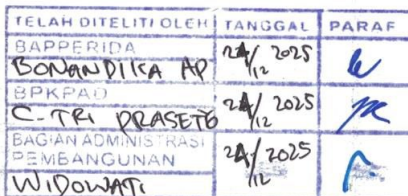 TELAH DITELITI OLEH TANGGAL PARAF
BAPPERIDA
BONANDIKA AP 24/12 2025
BPKPAD
C-TRI PRASETO 24/12 2025
BAGIAN ADMINISTRASI
PEMBANGUNAN 24/12 2025
WIDOWATI